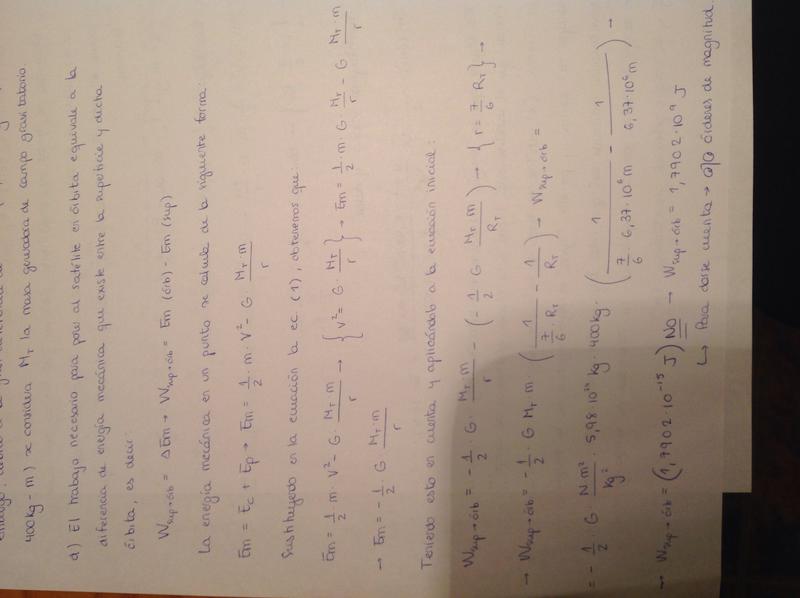 400kg - m) se considera M_T la masa generadora de campo gravitatorio.
d) El trabajo necesario para poner al satélite en órbita equivale a la
diferencia de energía mecánica que existe entre la superficie y dicha
órbita, es decir:
W_sup→órb = ΔEm → W_sup→órb = Em (órb) - Em (sup)
La energía mecánica en un punto se calcula de la siguiente forma:
Em = Ec + Ep → Em = 1/2 · m · v² - G M_T · m / r
Sustituyendo en la ecuación la ec. (1), obtenemos que
Em = 1/2 · m · v² - G · M_T · m / r → { v² = G · M_T / r } → Em = 1/2 · m · G · M_T / r - G M_T · m / r
→ Em = - 1/2 · G · M_T · m / r
Teniendo esto en cuenta y aplicándolo a la ecuación inicial:
W_sup→órb = - 1/2 · G · M_T · m / r - (- 1/2 · G · M_T · m / R_T) → { r = 7/6 R_T } →
→ W_sup→órb = - 1/2 · G M_T · m · (1 / 7/6 · R_T - 1 / R_T) → W_sup→órb =
= - 1/2 · G · N·m² / kg² · 5,98·10²⁴ kg · 400kg · (1 / 7/6 · 6,37·10⁶ m - 1 / 6,37·10⁶ m) →
→ W_sup→órb = (1,7902·10⁻¹⁵ J) NO → W_sup→órb = 1,7902·10⁹ J
↳ Para darse cuenta → órdenes de magnitud.